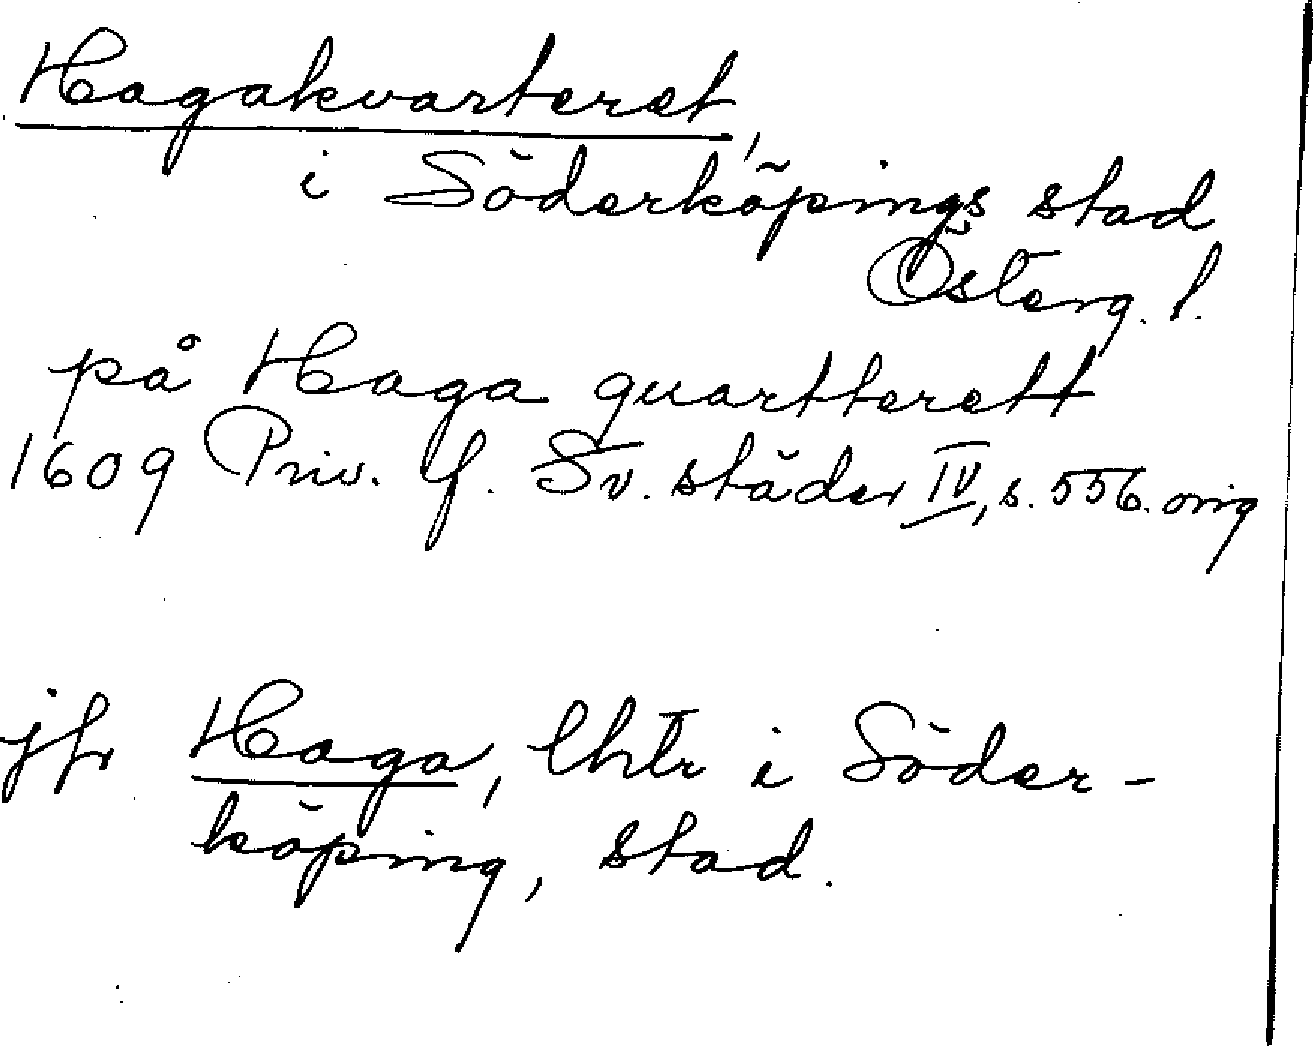 Hagakvarteret,
i Söderköpings stad
Österg. l.
på Haga quartterett
1609 Priv. f. Sv. städer IV, s. 556. orig
jfr Haga, i Söder-
köping, stad.